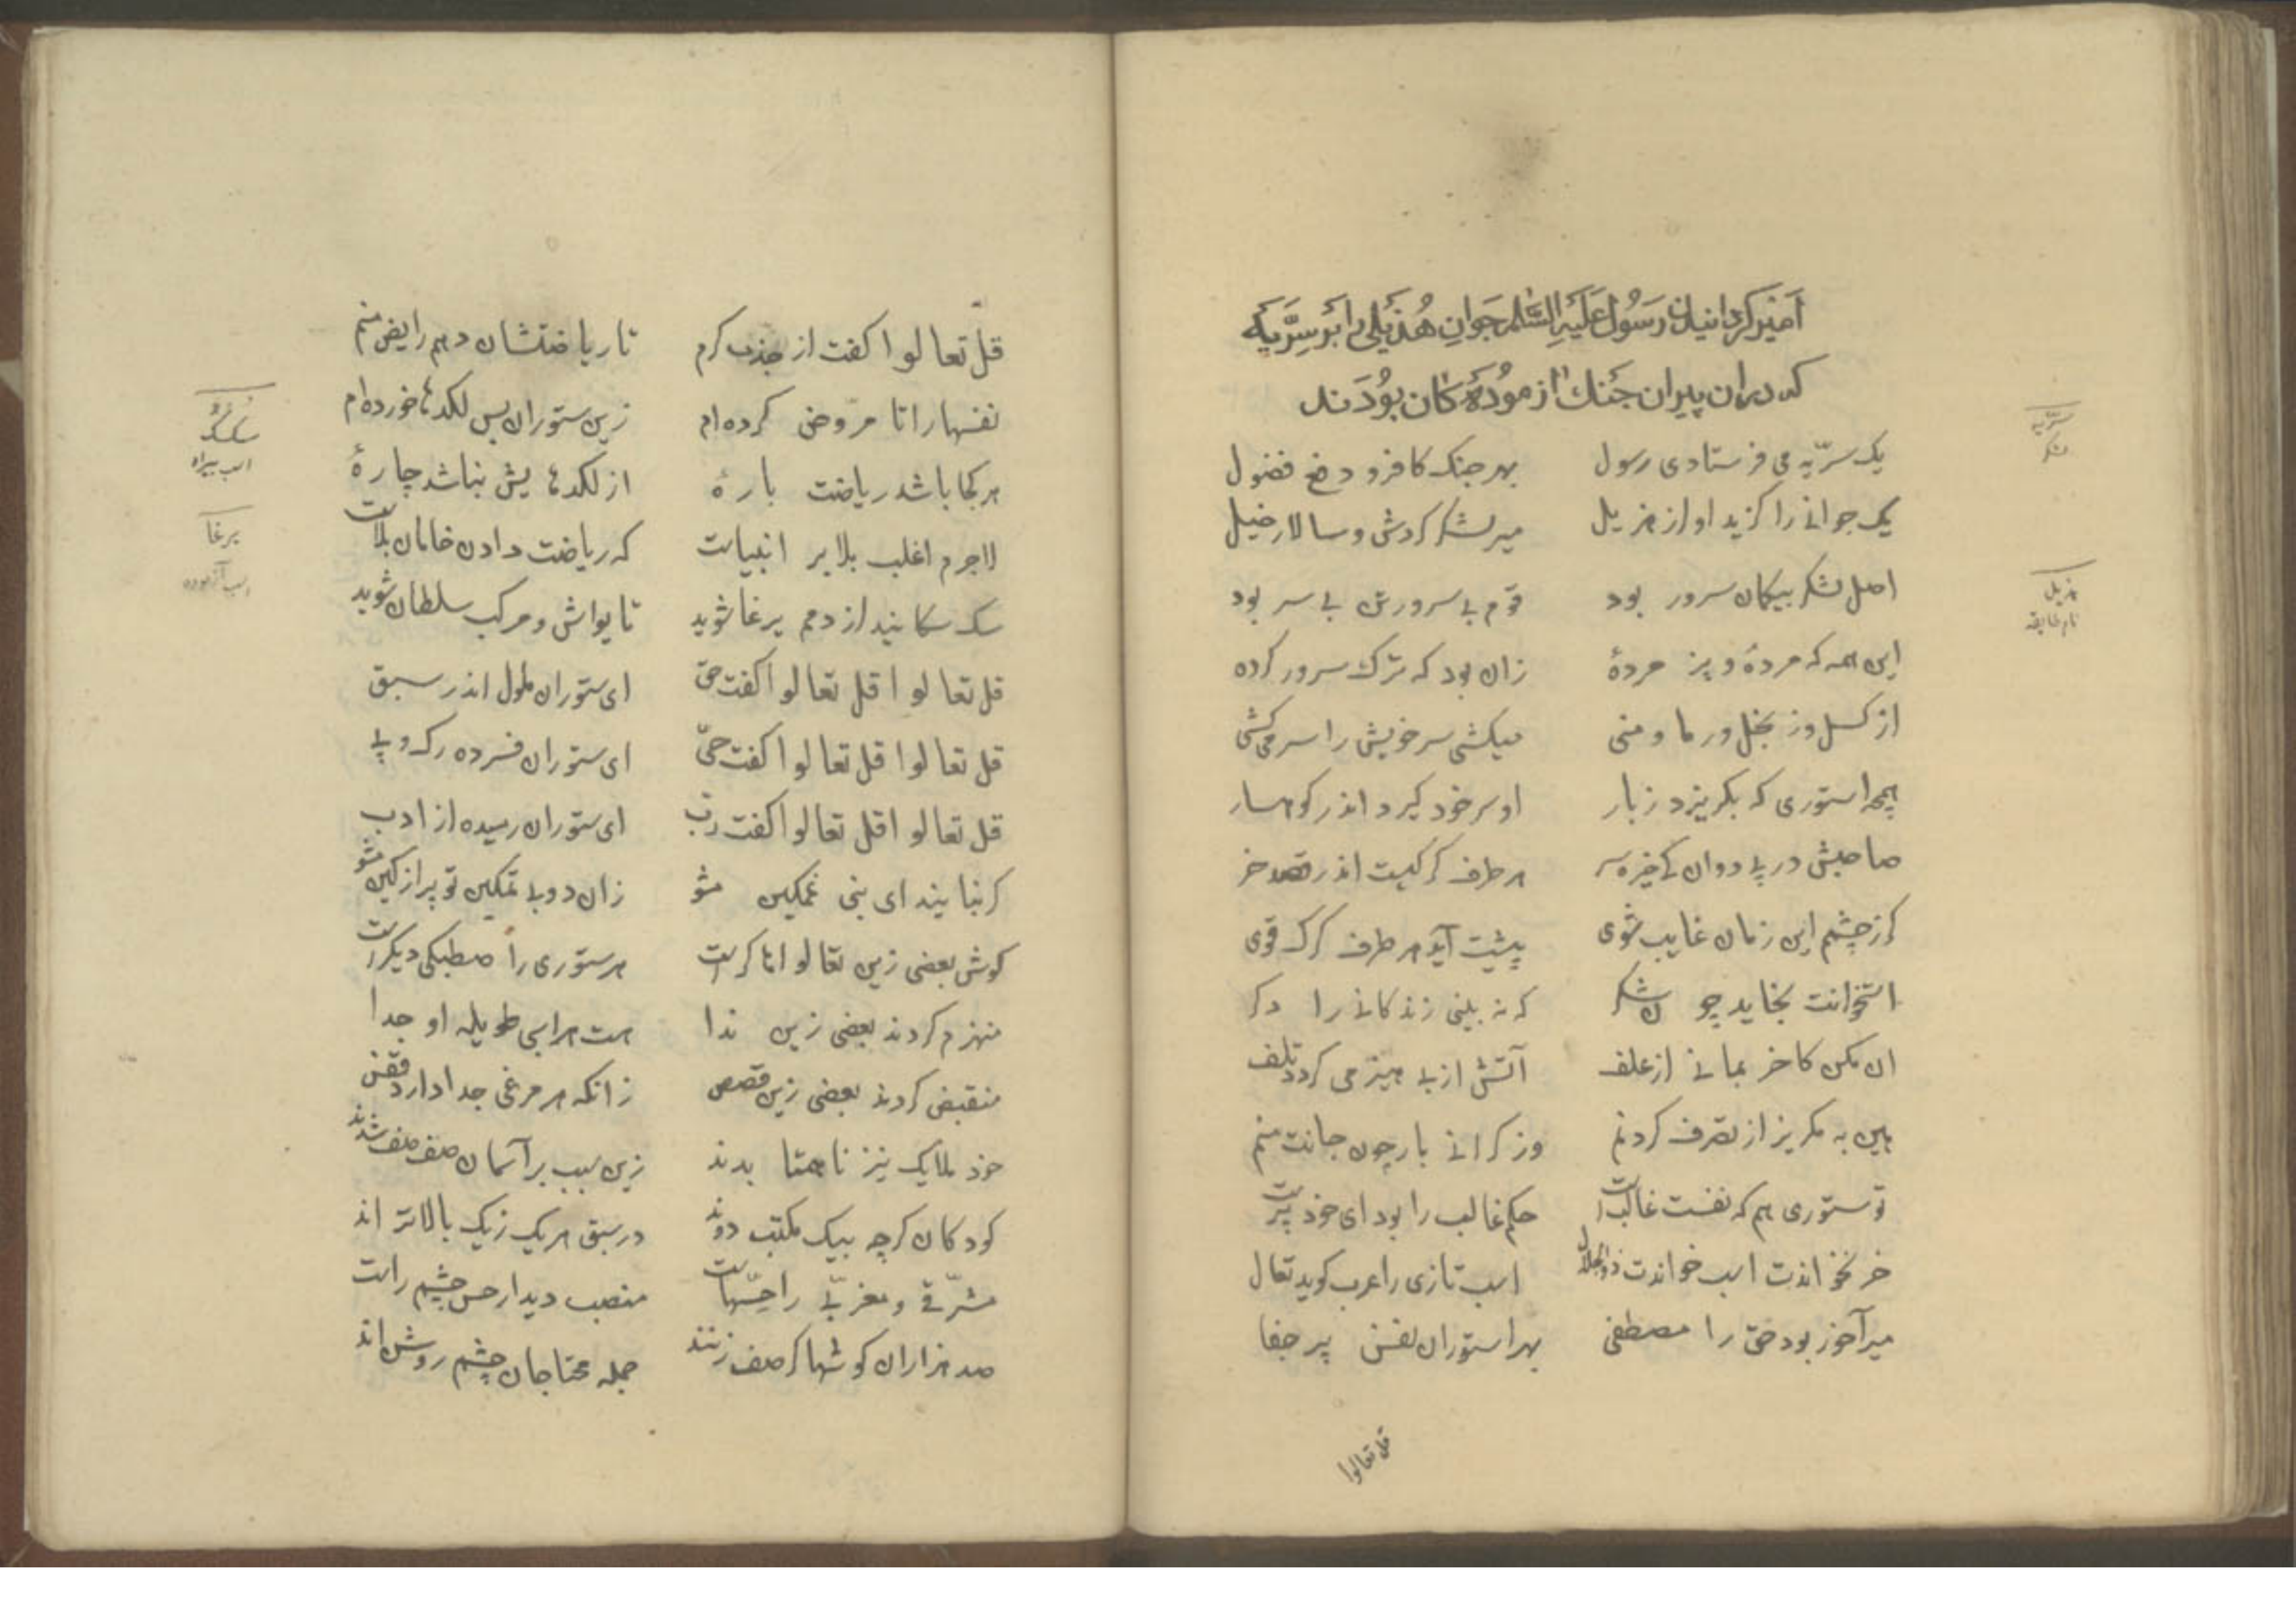 امیر کردانیدن رسول علیه السلام جوان هذیلی را بر سریه
که دران پیران جنک ازموده کان بودند
یک سریّه می فرستادی رسول بهر جنک کافر و دفع فضول
یک جوانی را کزید او از هزیل میر لشکر کردش و سالار خیل
اصل لشکر بیکمان سرور بود قوم بی سرور تن بی سر بود
این همه که مردهٔ و پژ مردهٔ زان بود که ترک سرور کرده
از کسل وز بخل ور ما و منی میکشی سر خویش را سر می کشی
همچو استوری که بکریزد ز بار او سر خود کیرد اندر کوهسار
صاحبش در پی دوان کی خیره سر هر طرف کرکیست اندر قصد خر
کر ز چشمم این زمان غایب شوی پیشت آید هر طرف کرک قوی
استخوانت بخاید چو شکر که نه بینی زندکانی را دکر
ان مکن کاخر بمانی از علف آتش از بی هیزمی کردد تلف
هین به مکریز از تصرف کردنم وز کرانی بار چون جانت منم
تو ستوری هم که نفست غالبست حکم غالب را بود ای خود پرست
خر نخواندت اسب خواندت ذوالجلال اسب تازی را عرب کوید تعال
میر آخور بود حق را مصطفی بهر استوران نفس پر جفا
قل تعالوا
سریّه
لشکر
هزیل
نام طایفه
قل تعالوا کفت از جذب کرم تا ریاضتشان دهم رایض منم
نفسها را تا مروض کرده ام زین ستوران بس لکدها خورده ام
هر کجا باشد ریاضت بارهٔ از لکدهایش نباشد چارهٔ
لاجرم اغلب بلا بر انبیاست که ریاضت دادن خامان بلاست
سک سکانید از دمم یرغا شوید تا یواش و مرکب سلطان شوید
قل تعالوا قل تعالوا کفت حق ای ستوران ملول اندر سبق
قل تعالوا قل تعالوا کفت حیّ ای ستوران فسرده رک و پی
قل تعالوا قل تعالوا کفت رب ای ستوران رمیده از ادب
کر نیایند ای نبی غمکین مشو زان دو بی تمکین تو پر از کین مشو
کوش بعضی زین تعالواها کرست هر ستوری را صطبلی دیکرست
منهزم کردند بعضی زین ندا هست هر اسبی طویله او جدا
منقبض کردند بعضی زین قصص زانکه هر مرغی جدا دارد قفس
خود ملایک نیز ناهمتا بدند زین سبب بر آسمان صف صف شدند
کودکان کرچه بیک مکتب دوند در سبق هر یک ز یک بالاتر اند
مشرقی و مغربی را حسّهاست منصب دیدار حس چشم راست
صد هزاران کوشها کر صف زنند جمله محتاجان چشم روشن اند
سکسک
اسب بیراه
یرغا
اسب آزموده